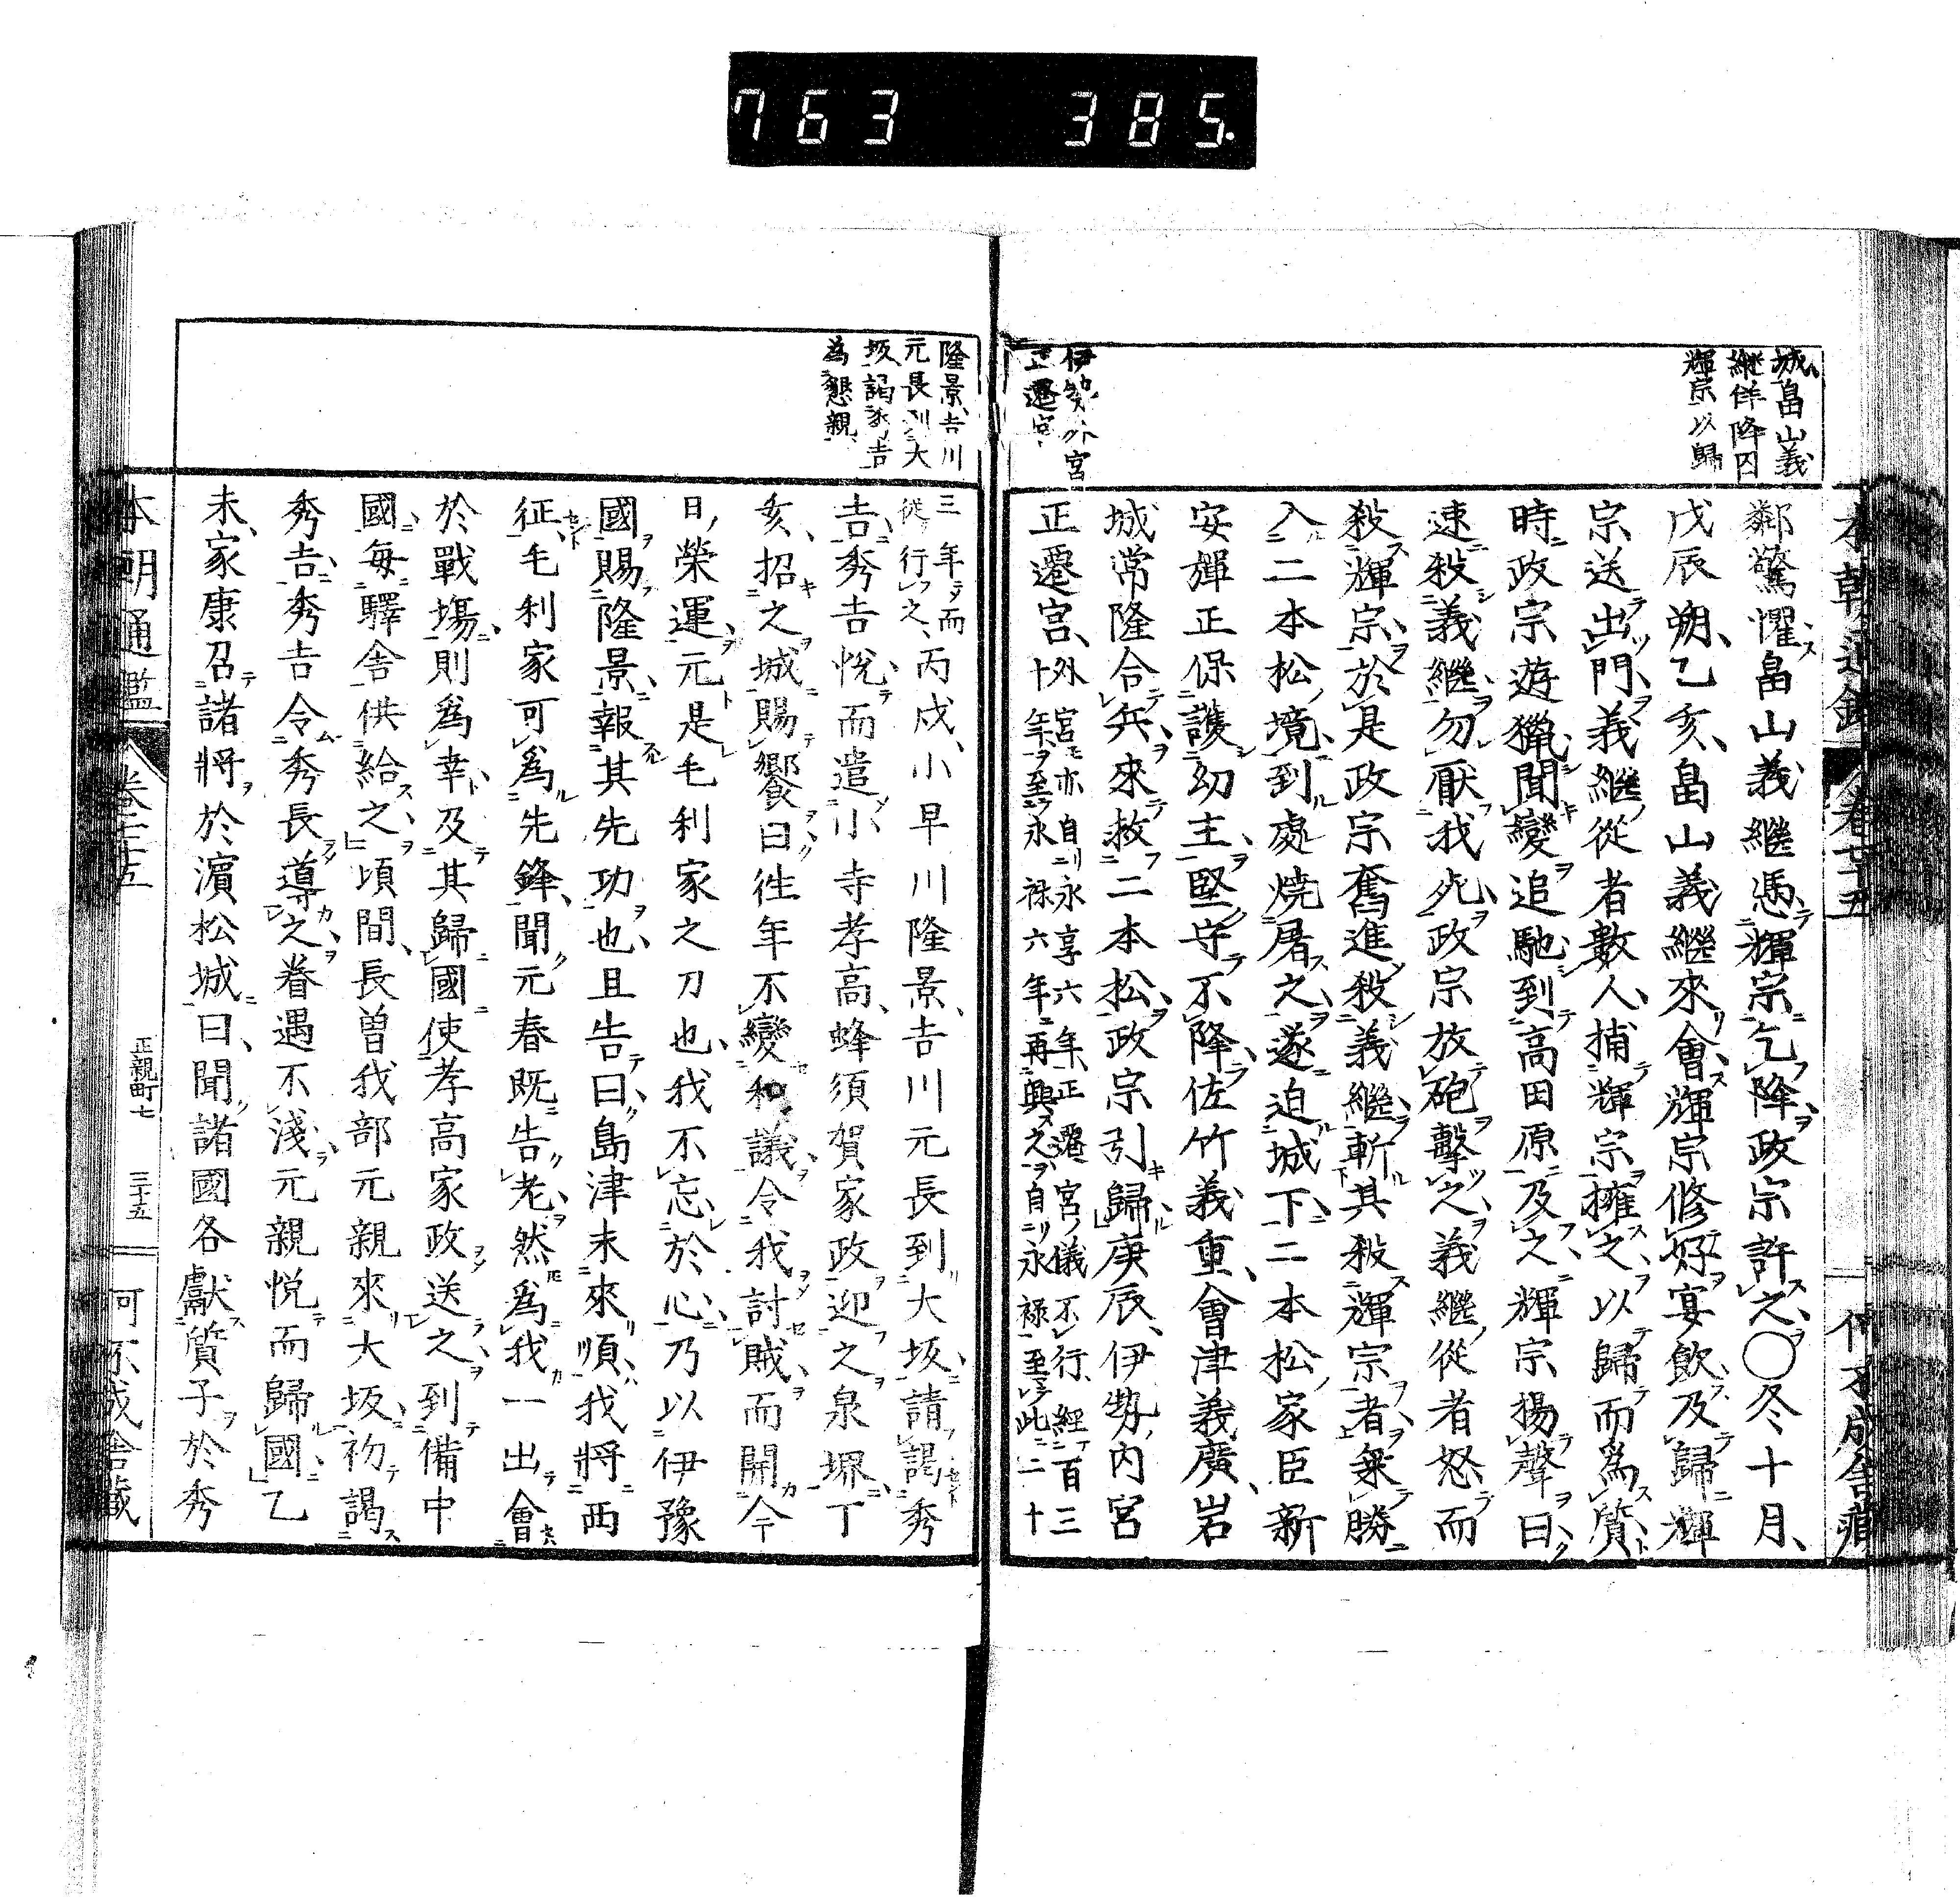 763 385.
城畠山義
継佯降囚
輝宗以歸
鄰驚懼畠山義繼憑輝宗乞降政宗許之○冬十月
戊辰朔乙亥畠山義繼來會輝宗修好宴飲及歸輝
宗送出門義繼從者數人捕輝宗擁之以歸而爲質
時政宗遊獵聞變追馳到高田原及之輝宗揚聲曰
速殺義繼勿厭我死政宗放砲擊之義繼從者怒而
殺輝宗於是政宗奮進殺義繼斬其殺輝宗者乗勝
入二本松境到處焼屠之遂迫城下二本松家臣新
安輝正保護幼主堅守不降佐竹義重會津義廣岩
城常隆合兵來救二本松政宗引歸庚辰伊勢内宮
正遷宮外宮亦自永享六年正遷宮儀不行經百三
十年至永禄六年再興之自永禄至此二十
伊勢外宮
正遷宮
隆景吉川
元長到大
坂謁秀吉
為懇親
三年而
從行之丙戍小早川隆景吉川元長到大坂請謁秀
吉秀吉悅而遣小寺孝高蜂須賀家政迎之泉堺丁
亥招之城賜饗曰往年不變和議令我討賊而開今
日榮運元是毛利家之力也我不忘於心乃以伊豫
國賜隆景報其先功也且告曰島津未來順我將西
征毛利家可爲先鋒聞元春既告老然爲我一出會
於戰塲則爲幸及其歸國使孝高家政送之到備中
國毎驛舎供給之頃間長曽我部元親來大坂初謁
秀吉秀吉令秀長導之眷遇不淺元親悅而歸國乙
未家康召諸將於濵松城曰聞諸國各獻質子於秀
本朝通鑑
正親町七
三十五